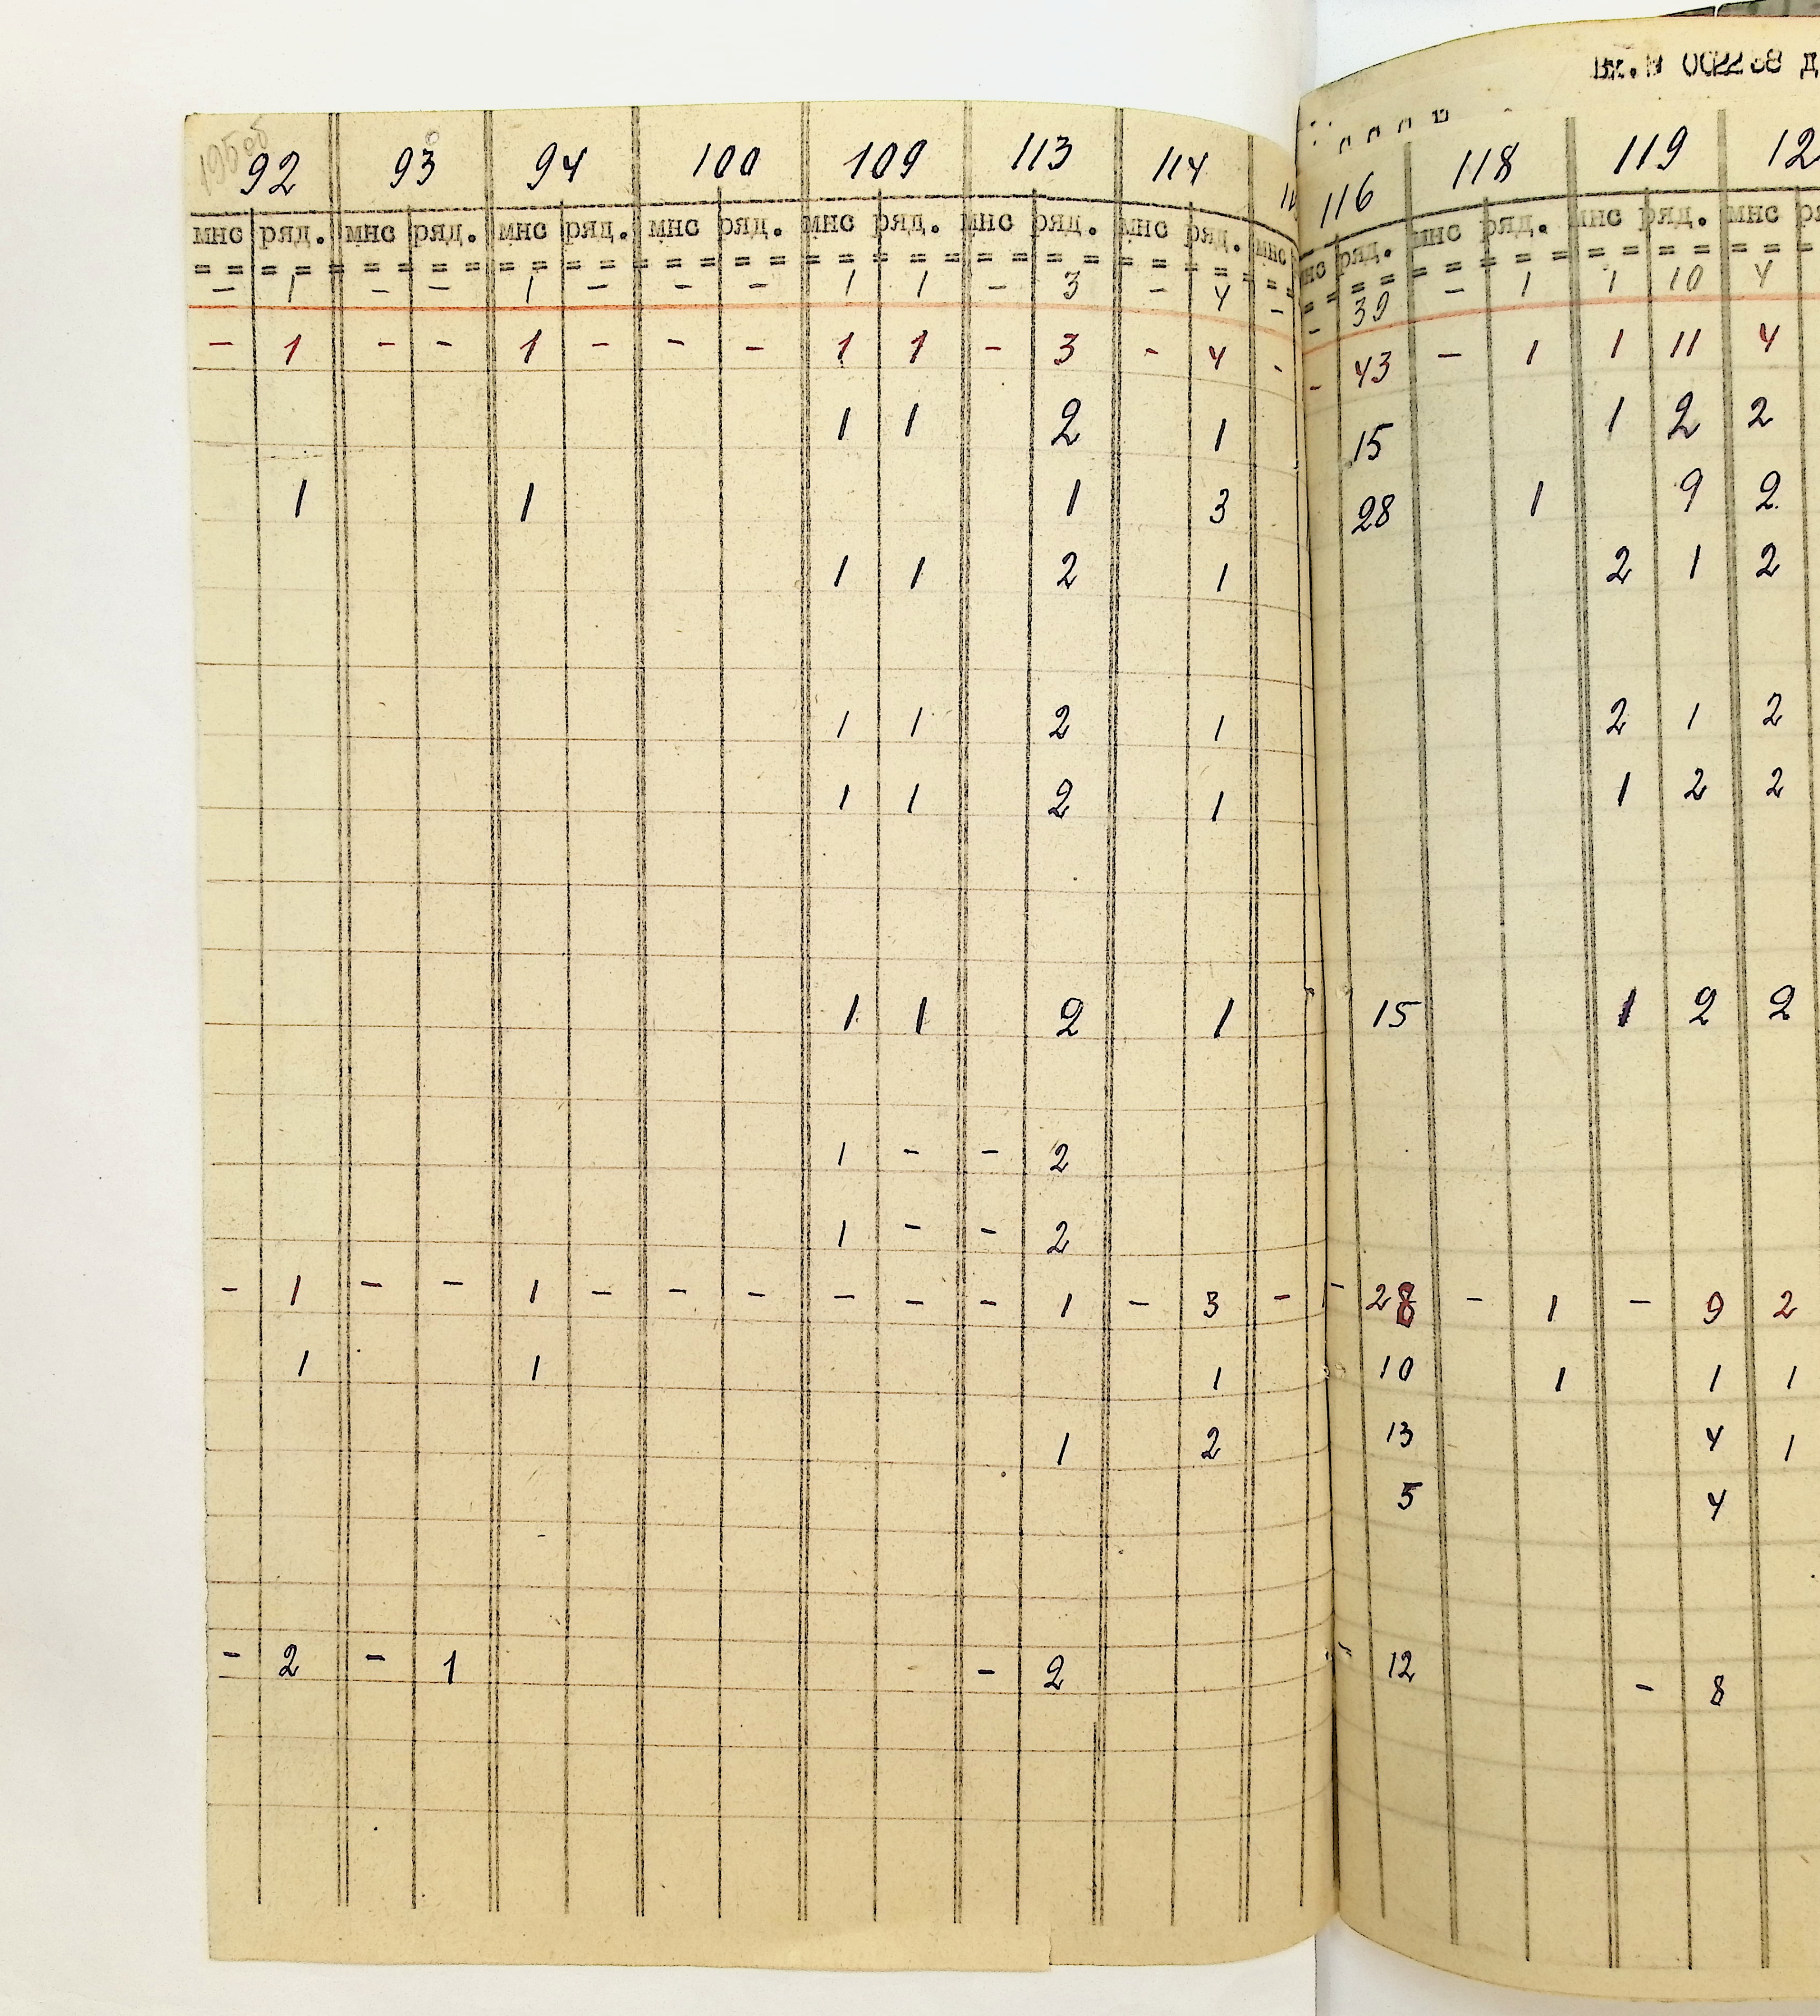 002238 д
92 93 94 100 109 113 114 116 118 119 12
мнс ряд. мнс ряд. мнс ряд. мнс ряд. мнс ряд. мнс ряд. мнс ряд. мнс ряд. мнс ряд. мнс ряд. мнс
= = = = = = = = = = = = = = = = = = = = = = = = = = = = = = = = = =
- 1 - - 1 - - - 1 1 - 3 - 4 - - 39 - 1 1 10 4
- 1 - - 1 - - - 1 1 - 3 - 4 - - 43 - 1 1 11 4
1 1 2 1 15 1 2 2
1 1 1 3 28 1 9 2
1 1 2 1 2 1 2
1 1 2 1 2 1 2
1 1 2 1 1 2 2
1 1 2 1 15 1 2 2
1 - - 2
1 - - 2
- 1 - - 1 - - - - - - 1 - 3 - - 28 - 1 - 9 2
1 1 1 10 1 1 1
1 2 13 4 1
5 4
- 2 - 1 - 2 - 12 - 8